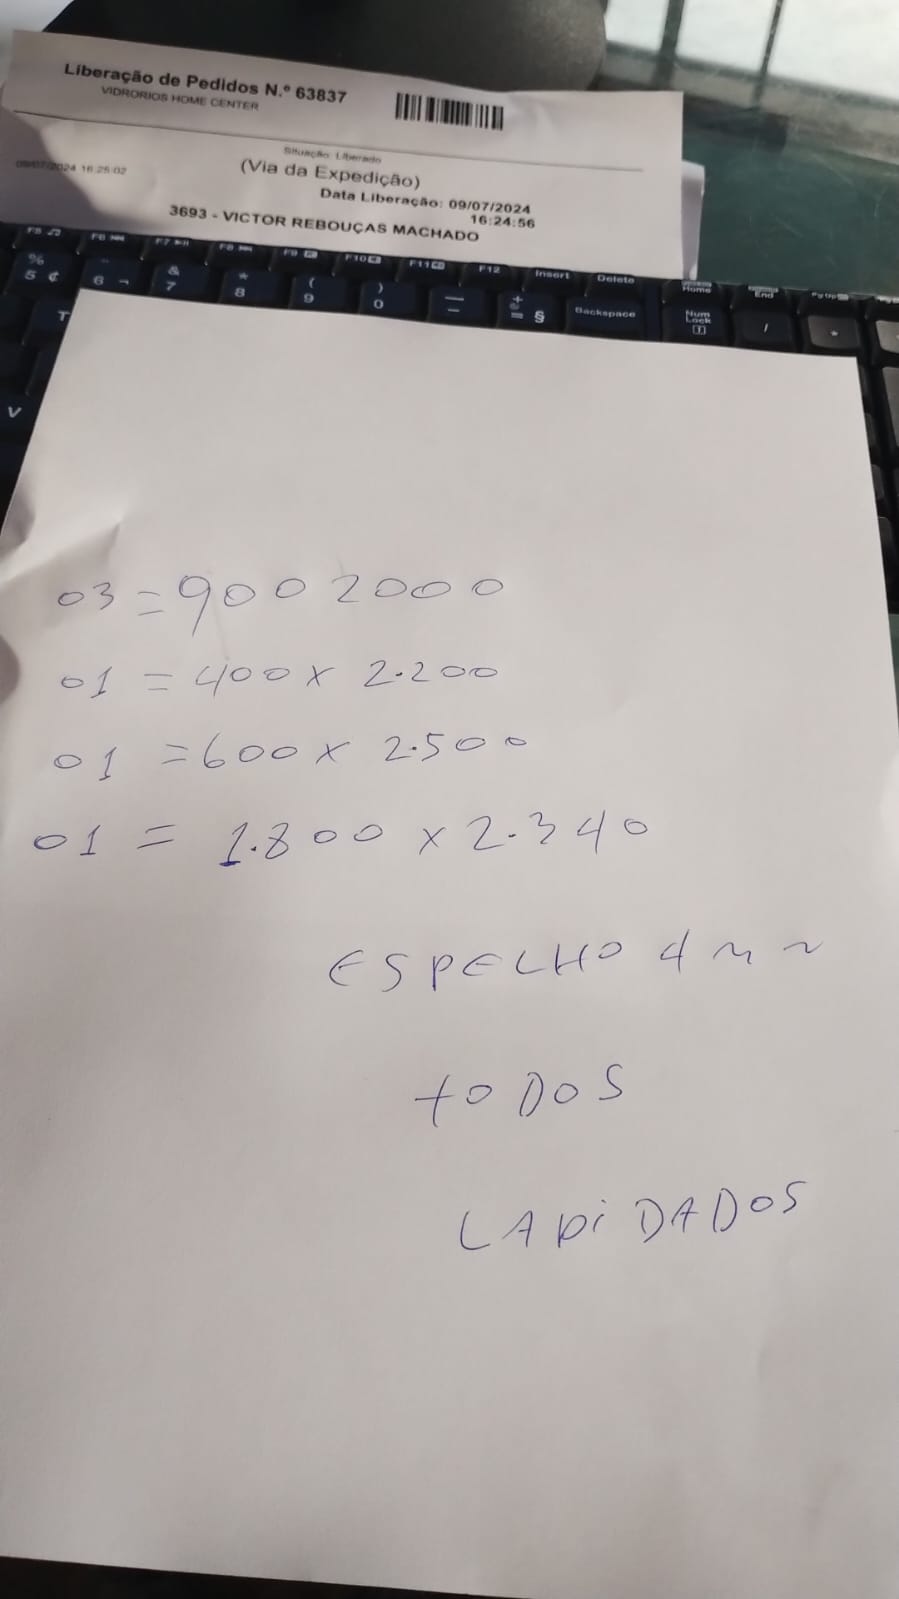 Liberação de Pedidos N.º 63837
VIDRORIOS HOME CENTER
Situação: Liberado
09/07/2024 16:25:02
(Via da Expedição)
Data Liberação: 09/07/2024
16:24:56
3693 - VICTOR REBOUÇAS MACHADO
F5 F6 F7 F8 F9 F10 F11 F12 Insert Delete Home End
% 5 ¢ 6 ¬ & 7 * 8 ( 9 ) 0 + = § Backspace Num Lock / *
T
V
03 = 900 2000
01 = 400 x 2.200
01 = 600 x 2.500
01 = 1.800 x 2.340
ESPELHO 4 mm
TODOS
LAPiDADOS